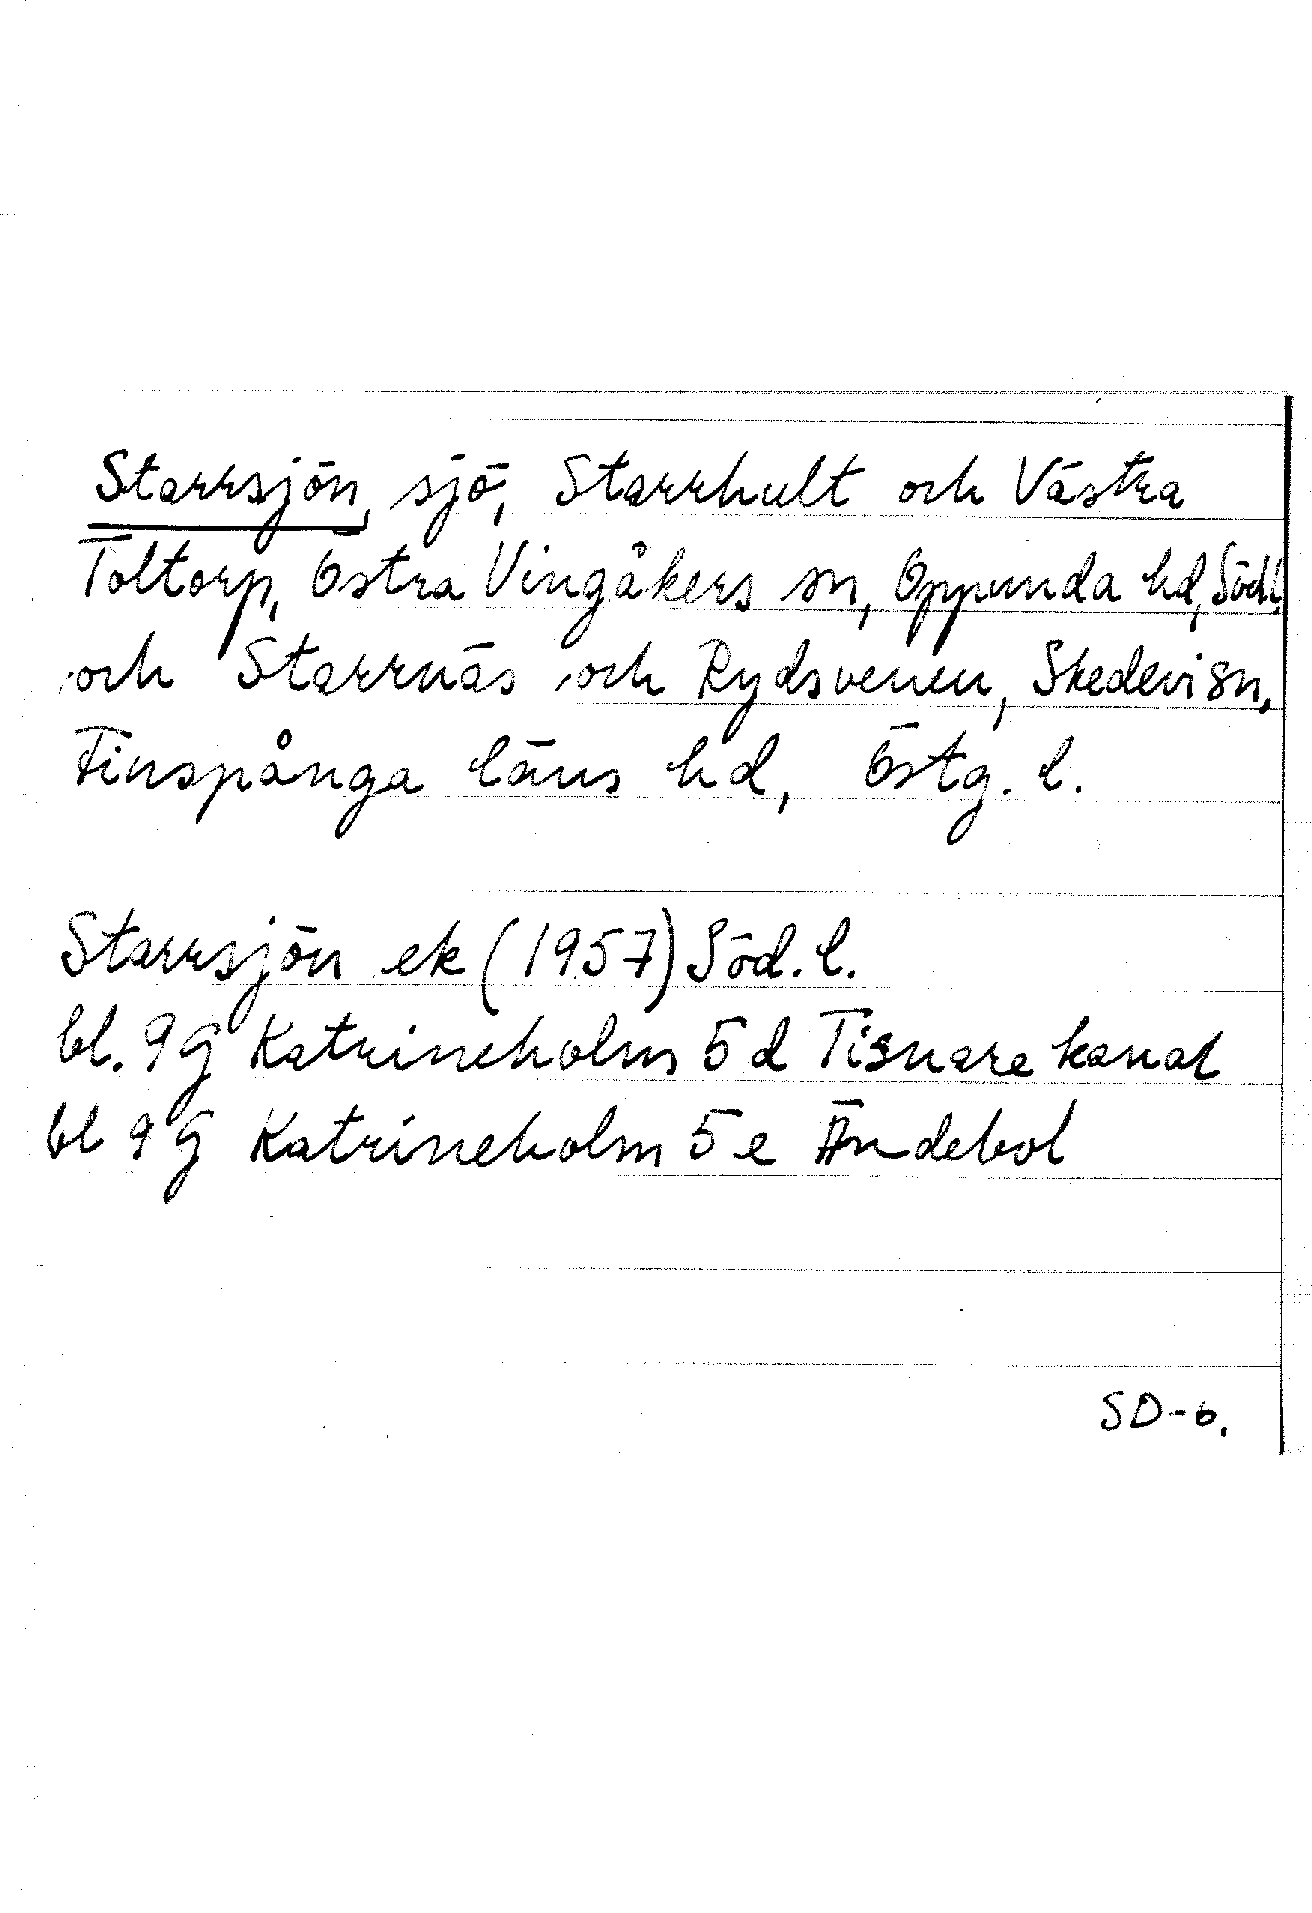 Starrsjön, sjö, Starrhult och Västra
Toltorp, Östra Vingåkers sn, Oppunda hd, Söd.l.
och Starrnäs och Rydsvenen, Skedevi sn,
Finspånga läns hd, Östg. l.
Starrsjön ek (1957) Söd. l.
bl. 9G Katrineholm 5 d Tisnare kanal
bl 9G Katrineholm 5 e Ändebol
SD-6.